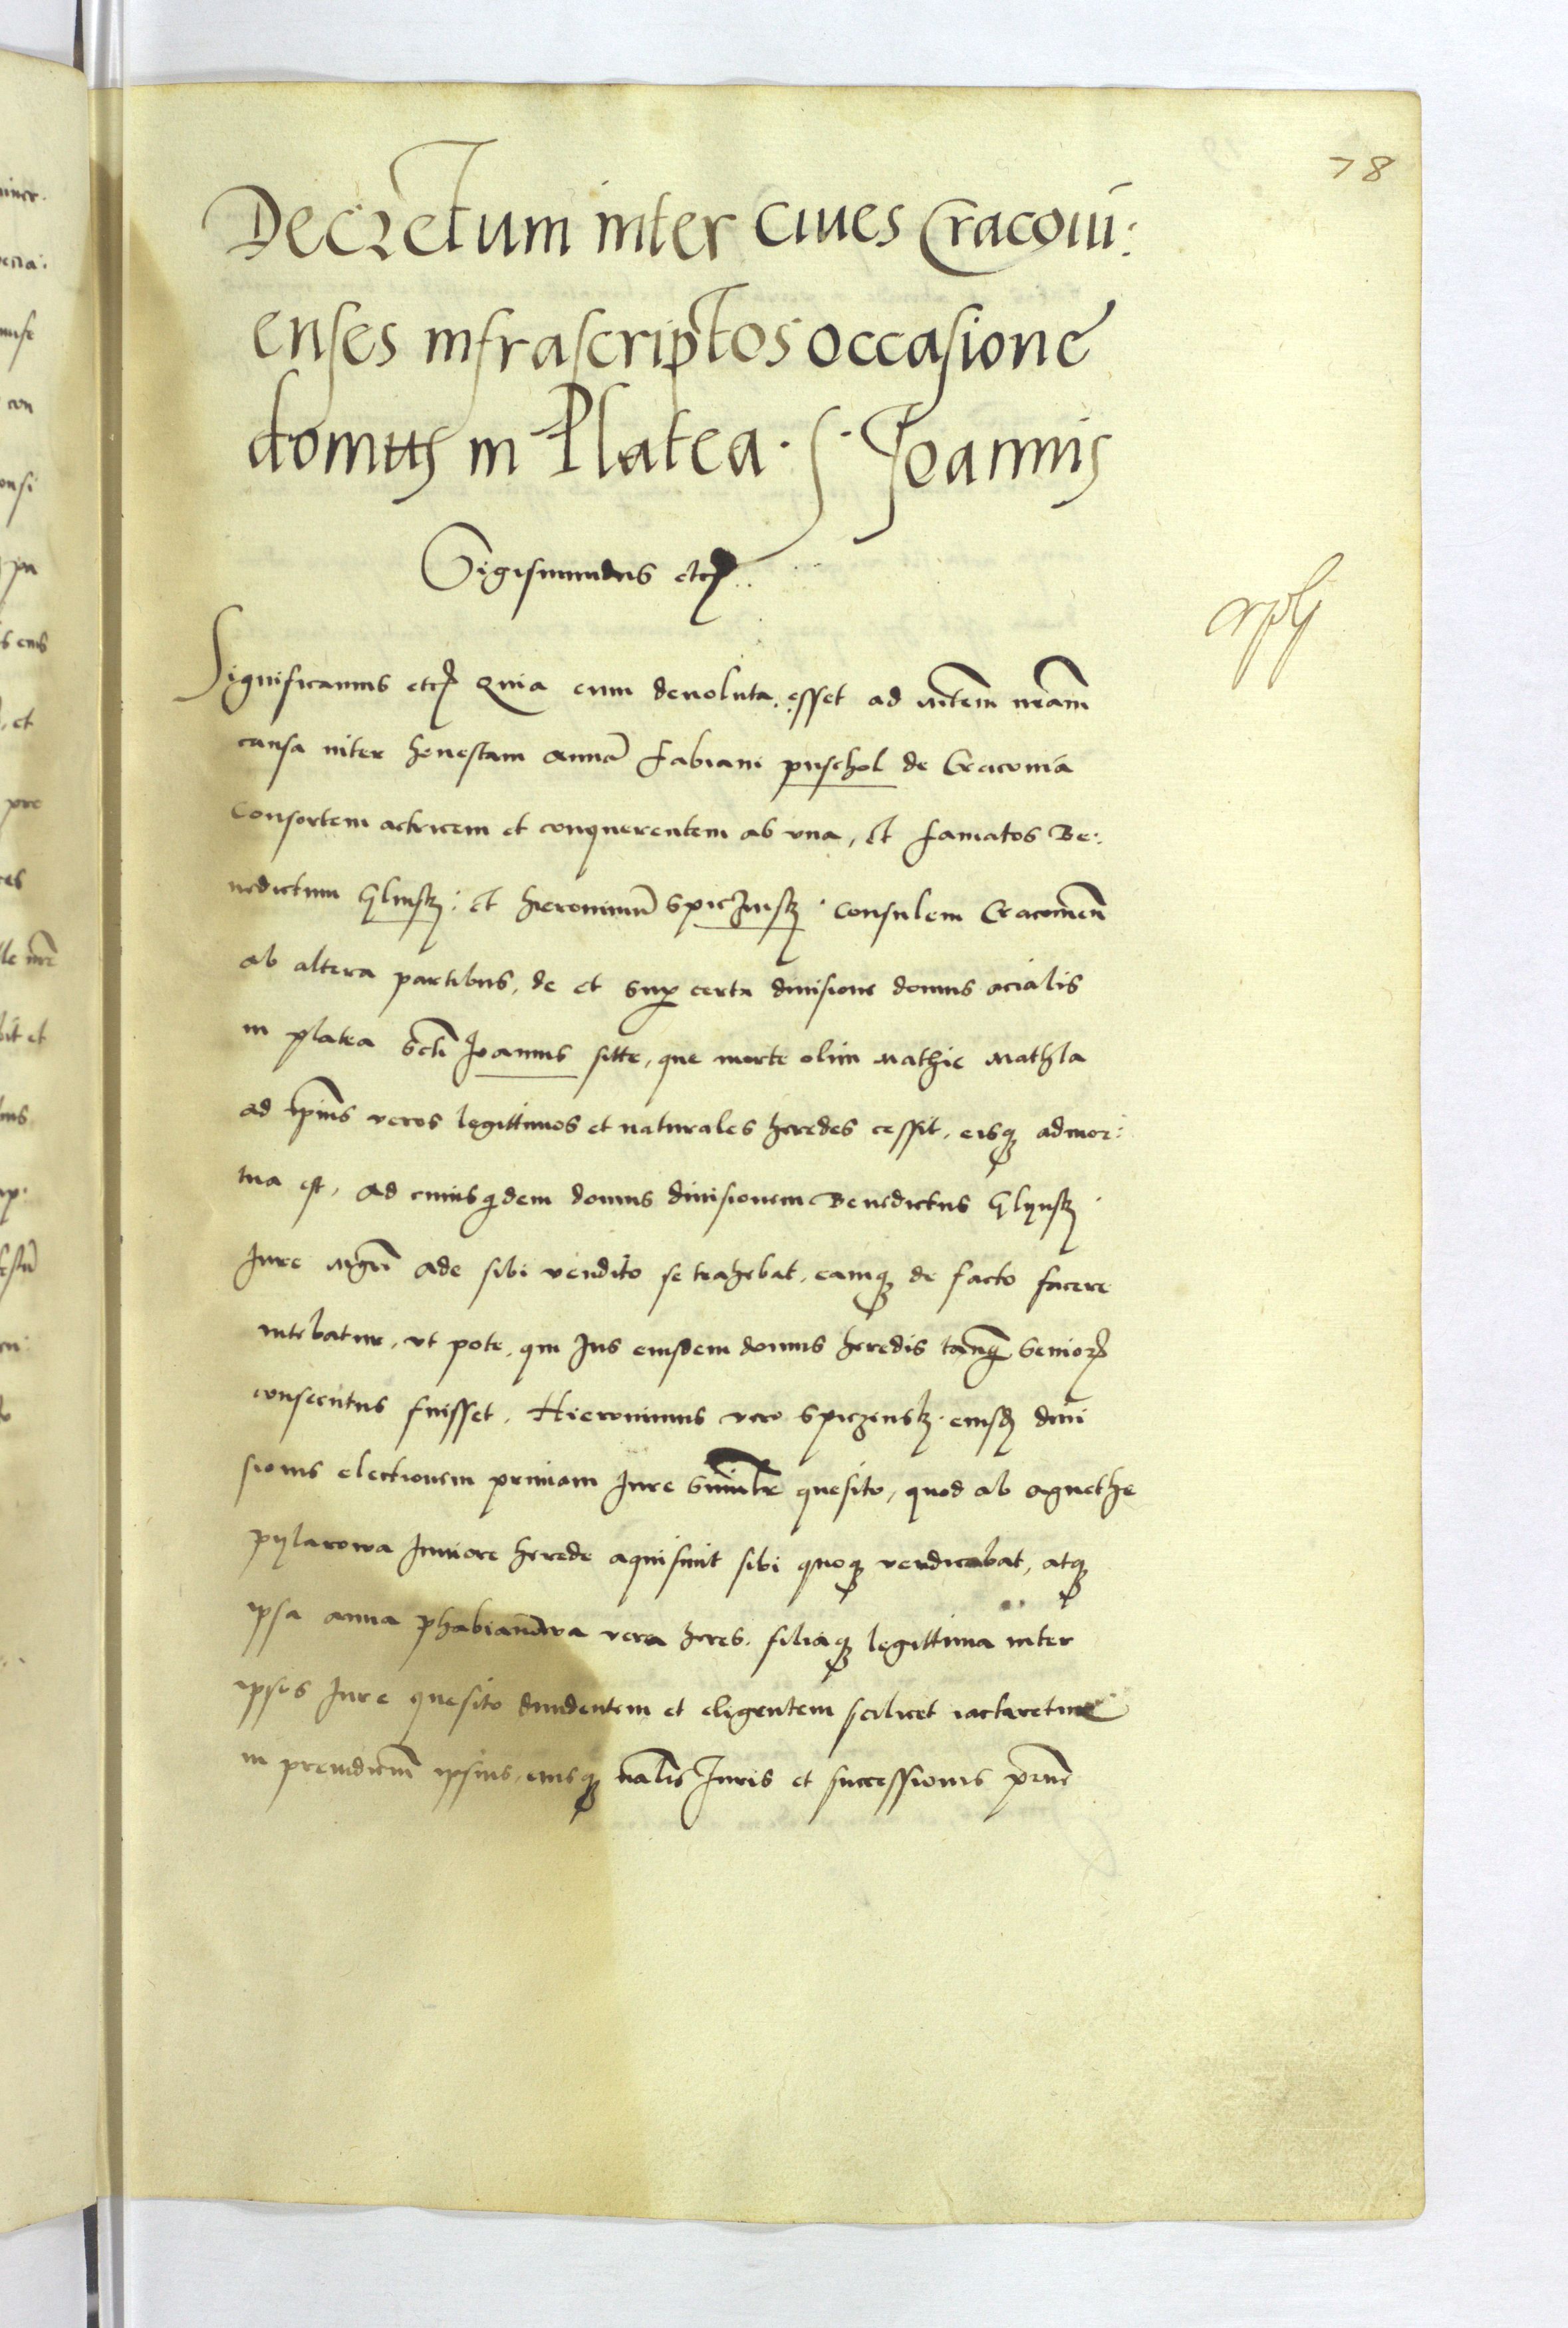 78
Decretum inter ciues Cracoui:
enses infrascriptos occasione
domus in Platea · S · Joannis
Sigismundus etc
Significamus etc Quia cum deuoluta esset ad Mtem nram
causa inter honestam Annā Fabiani puschol de Cracouia
consortem actricem et conquerentem ab vna, Et famatos Be:
nedictum Glinsky: Et Hieronimū Spiczinsky consulem Cracouien
ab altera partibus, de et sup certa diuisione domus acialis
in platea Scti Joannis sitte, que morte olim Mathie Mathla
ad ipius veros legittimos et naturales heredes cessit, eisq admor:
tua est, Ad cuius qdem domus diuisionem Benedictus Glynsky
Jure Mgri Ade sibi vendito se trahebat, eamq de facto facere
nitebatur, vt pote, qui Jus eiusdem domus heredis tanq senioris
consecutus fuisset, Hieronimus vero Spiczensky eiusd diui
sionis electionem primam Jure similr quesito, quod ab Agnethe
pylarowa Juniore herede aquisiuit sibi quoq vendicabat, atq
ipsa Anna phabianowa vera heres, filiaq legittima inter
ipsos Jure quesito diuidentem et eligentem scilicet iactaretur
in preiudicium ipsius, eiusq nalis Juris et successionis